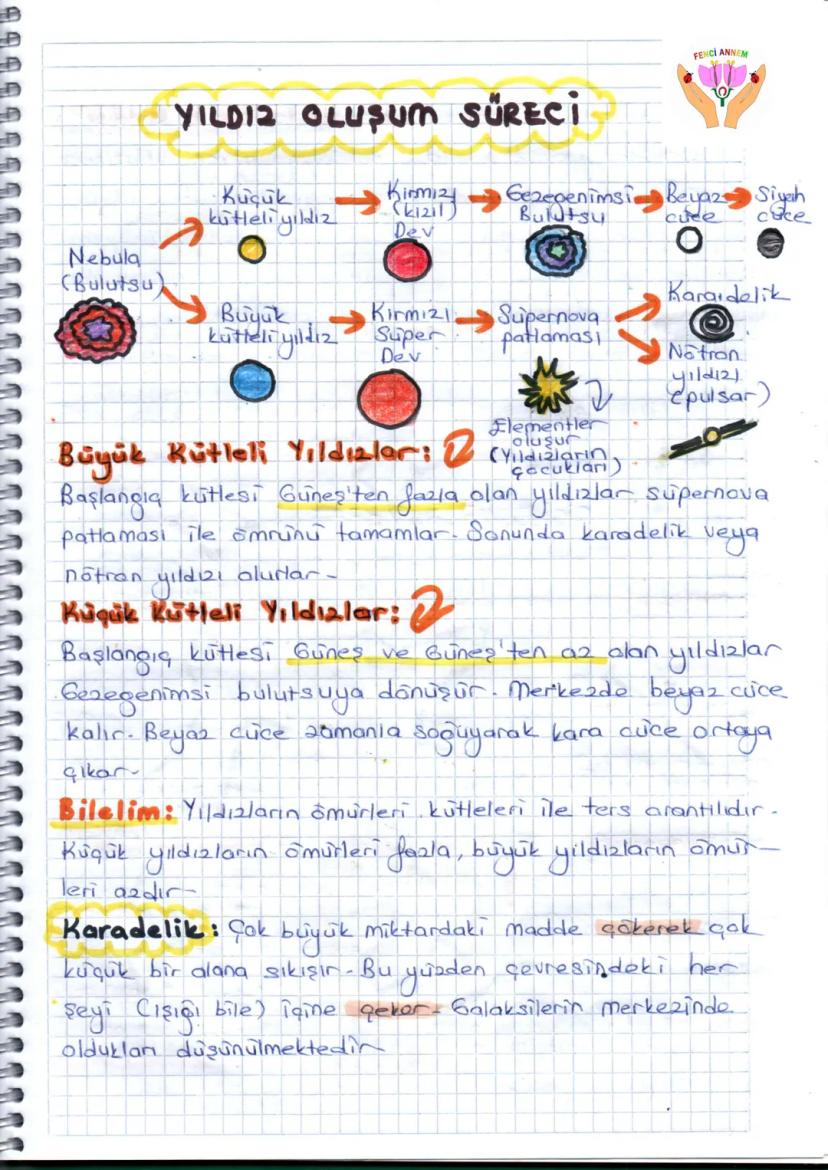 FENCİ ANNEM
YILDIZ OLUŞUM SÜRECİ
Nebula
(Bulutsu)
Küçük
kütleli yıldız
Kırmızı
(kızıl)
Dev
Gezegenimsi
Bulutsu
Beyaz
cüce
Siyah
cüce
Büyük
kütleli yıldız
Kırmızı
Süper
Dev
Süpernova
patlaması
Karadelik
Nötron
yıldızı
(pulsar)
Elementler
oluşur
(Yıldızların
çocukları)
Büyük Kütleli Yıldızlar:
Başlangıç kütlesi Güneş'ten fazla olan yıldızlar süpernova
patlaması ile ömrünü tamamlar. Sonunda karadelik veya
nötron yıldızı olurlar.
Küçük Kütleli Yıldızlar:
Başlangıç kütlesi Güneş ve Güneş'ten az olan yıldızlar
Gezegenimsi bulutsuya dönüşür. Merkezde beyaz cüce
kalır. Beyaz cüce zamanla soğuyarak kara cüce ortaya
çıkar.
Bilelim: Yıldızların ömürleri kütleleri ile ters orantılıdır.
Küçük yıldızların ömürleri fazla, büyük yıldızların ömür-
leri azdır.
Karadelik: Çok büyük miktardaki madde çökerek çok
küçük bir alana sıkışır. Bu yüzden çevresindeki her
şeyi (ışığı bile) içine çeker. Galaksilerin merkezinde
oldukları düşünülmektedir.